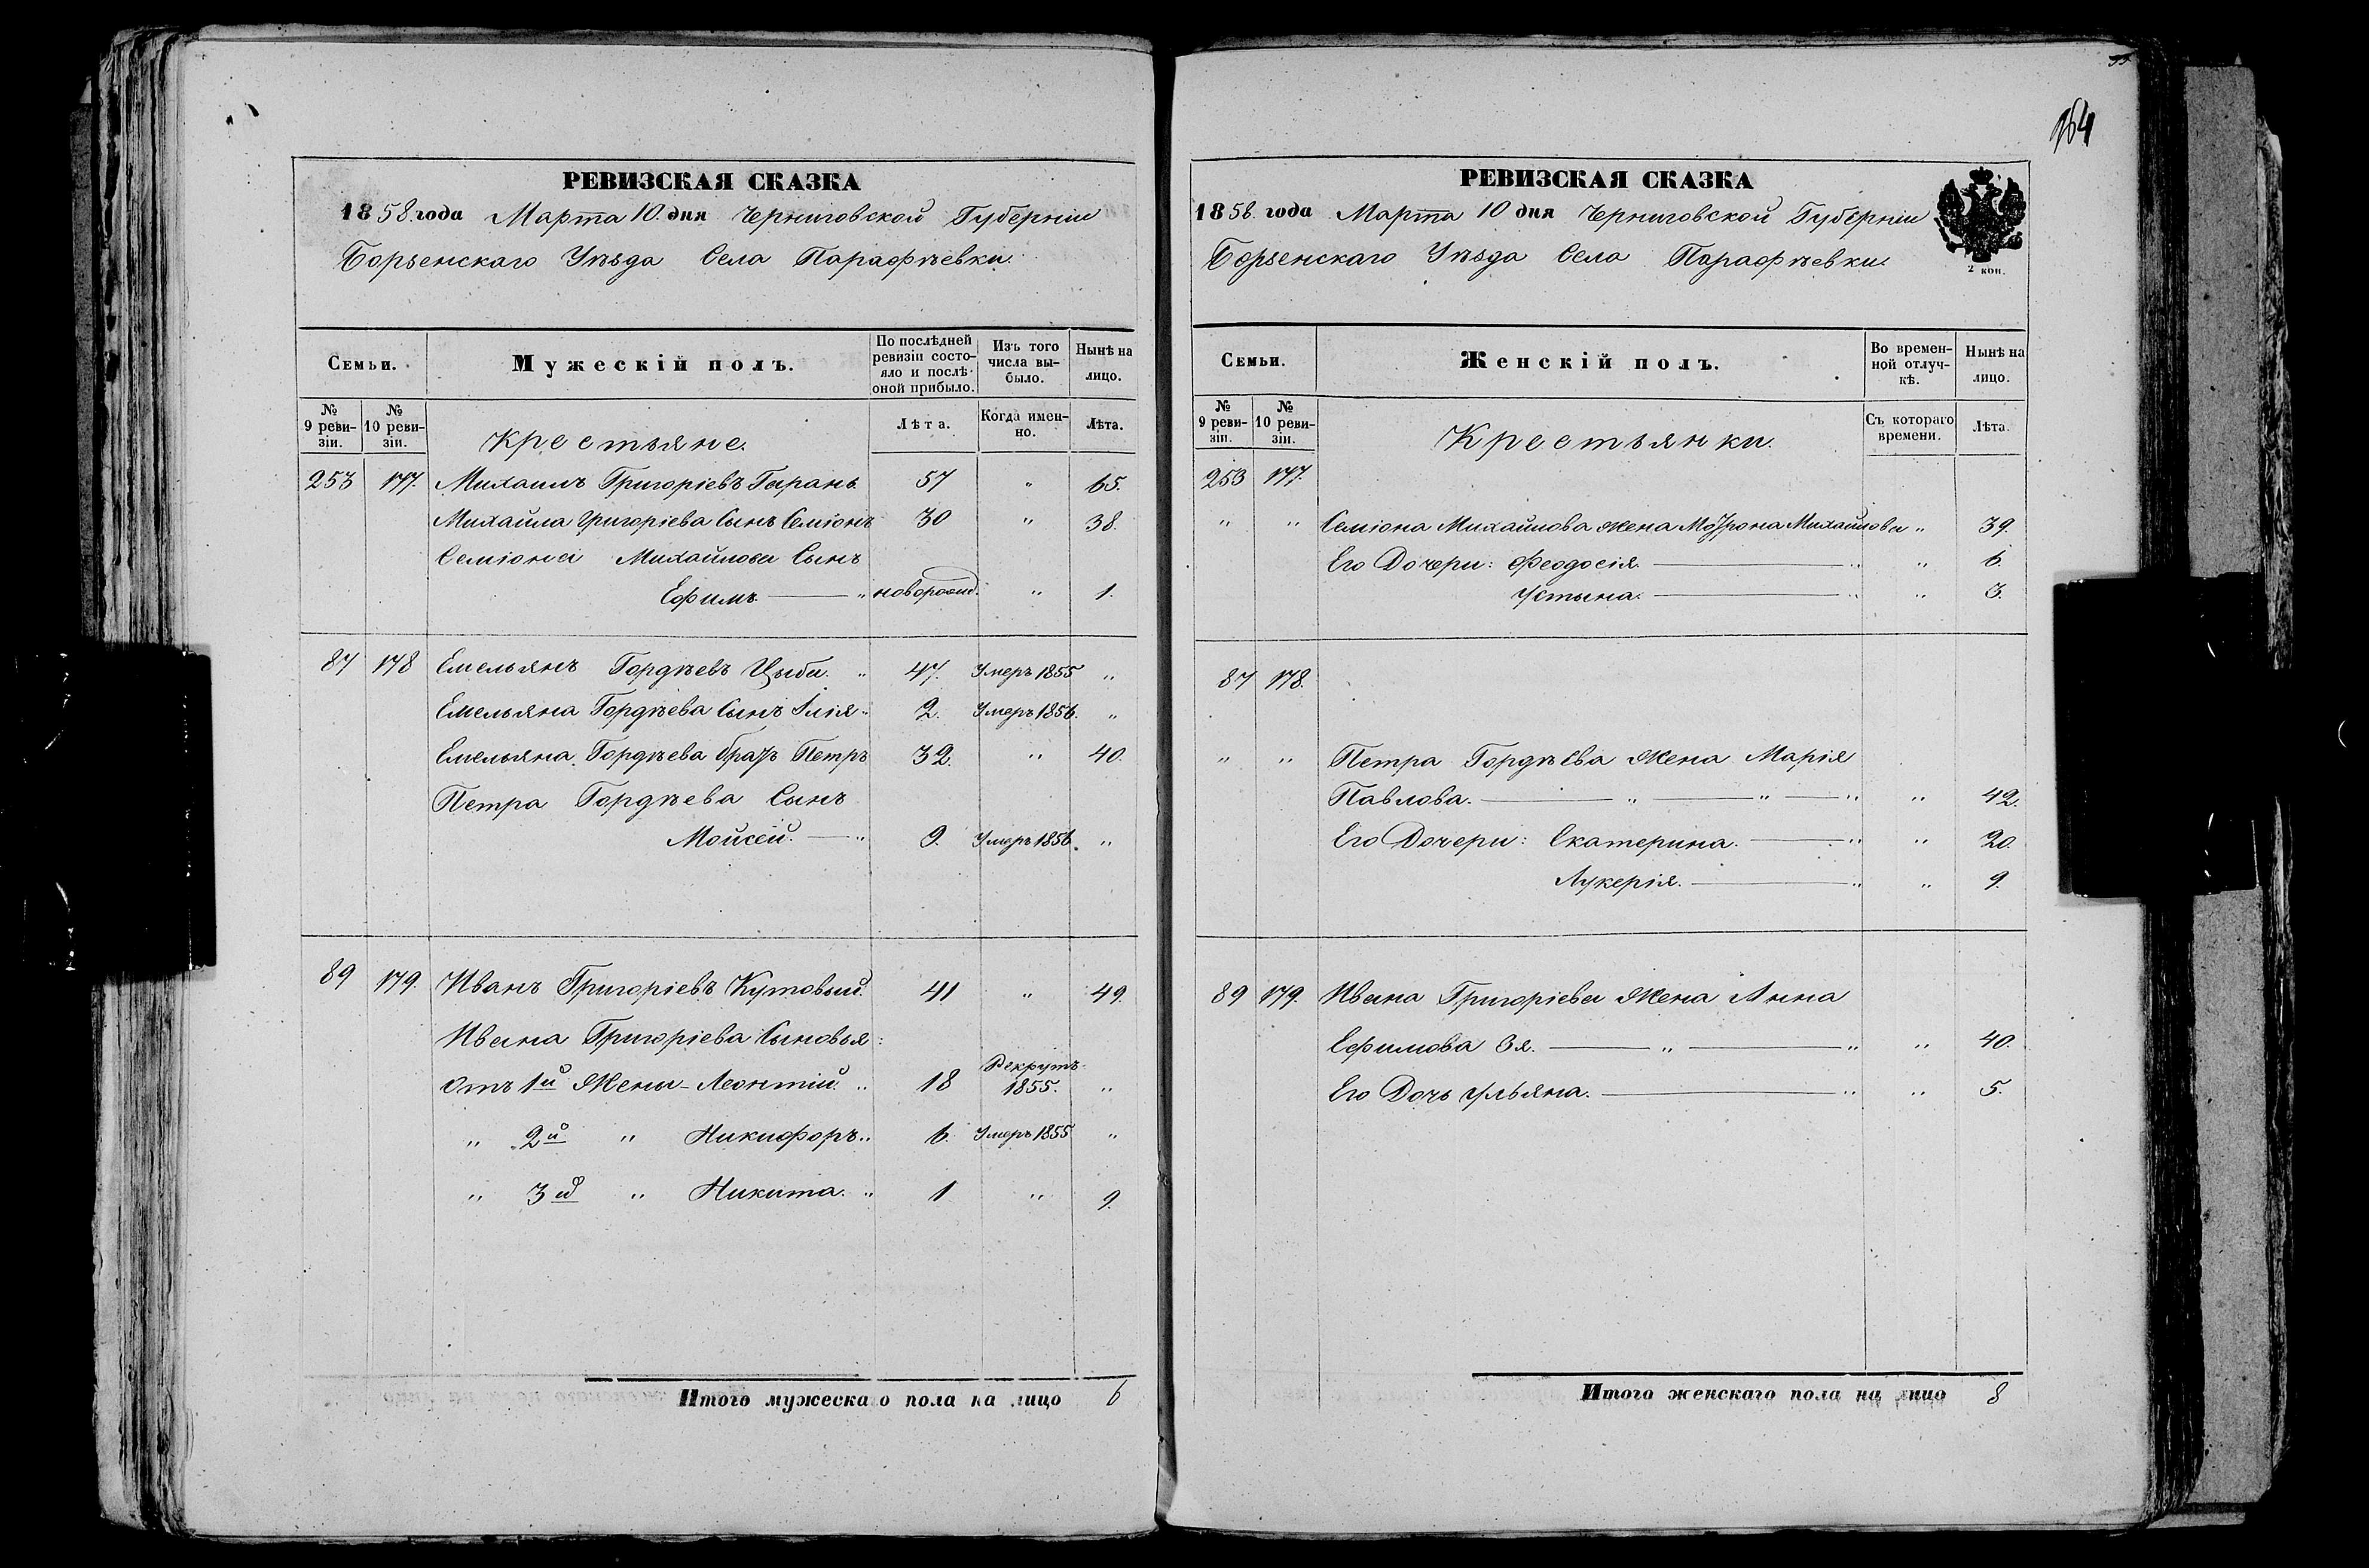 РЕВИЗСКАЯ СКАЗКА
1858 года Марта 10. дня Черниговской Губерніи
Борзенскаго Уѣзда Села Парафѣевки.
Семьи.
Мужескій полъ.
По послѣдней ревизіи состояло и послѣ оной прибыло.
Изъ того числа выбыло.
Нынѣ на лицо.
№ 9 ревизіи.
№ 10 ревизіи.
Крестьяне.
Лѣта.
Когда именно.
Лѣта.
253 177. Михаилъ Григоріевъ Гарань. 57 " 65.
Михаила Григоріева Сынъ Семіонъ 30 " 38.
Семіона Михайлова Сынъ
Ефимъ. — " новорожд. " 1.
87 178 Емельянъ Гордѣевъ Цыба. " 47. Умеръ 1855 "
Емельяна Гордѣева Сынъ Илія " 2. Умеръ 1856. "
Емельяна Гордѣева братъ Петръ 32. " 40.
Петра Гордѣева Сынъ
Мойсей. — " 9. Умеръ 1856. "
89 179. Иванъ Григоріевъ Кутовый. 41 " 49.
Ивана Григоріева Сыновья:
Отъ 1й Жены - Леонтій. " 18 Рекрутъ 1855. "
" 2й " Никифоръ. " 6. Умеръ 1855 "
" 3й " Никита. " 1 " 9.
Итого мужескаго пола на лицо 6
164
РЕВИЗСКАЯ СКАЗКА
1858. года Марта 10 дня Черниговской Губерніи
Борзенскаго Уѣзда Села Парафѣевки.
2 коп.
Семьи.
Женскій полъ.
Во временной отлучкѣ.
Нынѣ на лицо.
№ 9 ревизіи.
№ 10 ревизіи.
Крестьянки.
Съ котораго времени.
Лѣта.
253 177.
" " Семіона Михайлова жена Мотрона Михайлова " 39.
Его Дочери: Феодосія. — " " 6.
Устына. — " " 3.
87 178.
" " Петра Гордѣева Жена Марія
Павлова. — " — " — " " 42.
Его Дочери: Екатерина. — " " 20.
Лукерія. — " " 9.
89 179. Ивана Григоріева Жена Анна
Ефимова 3я. — " — " " 40.
Его Дочь Ульяна. — " " 5.
Итого женскаго пола на лицо 8